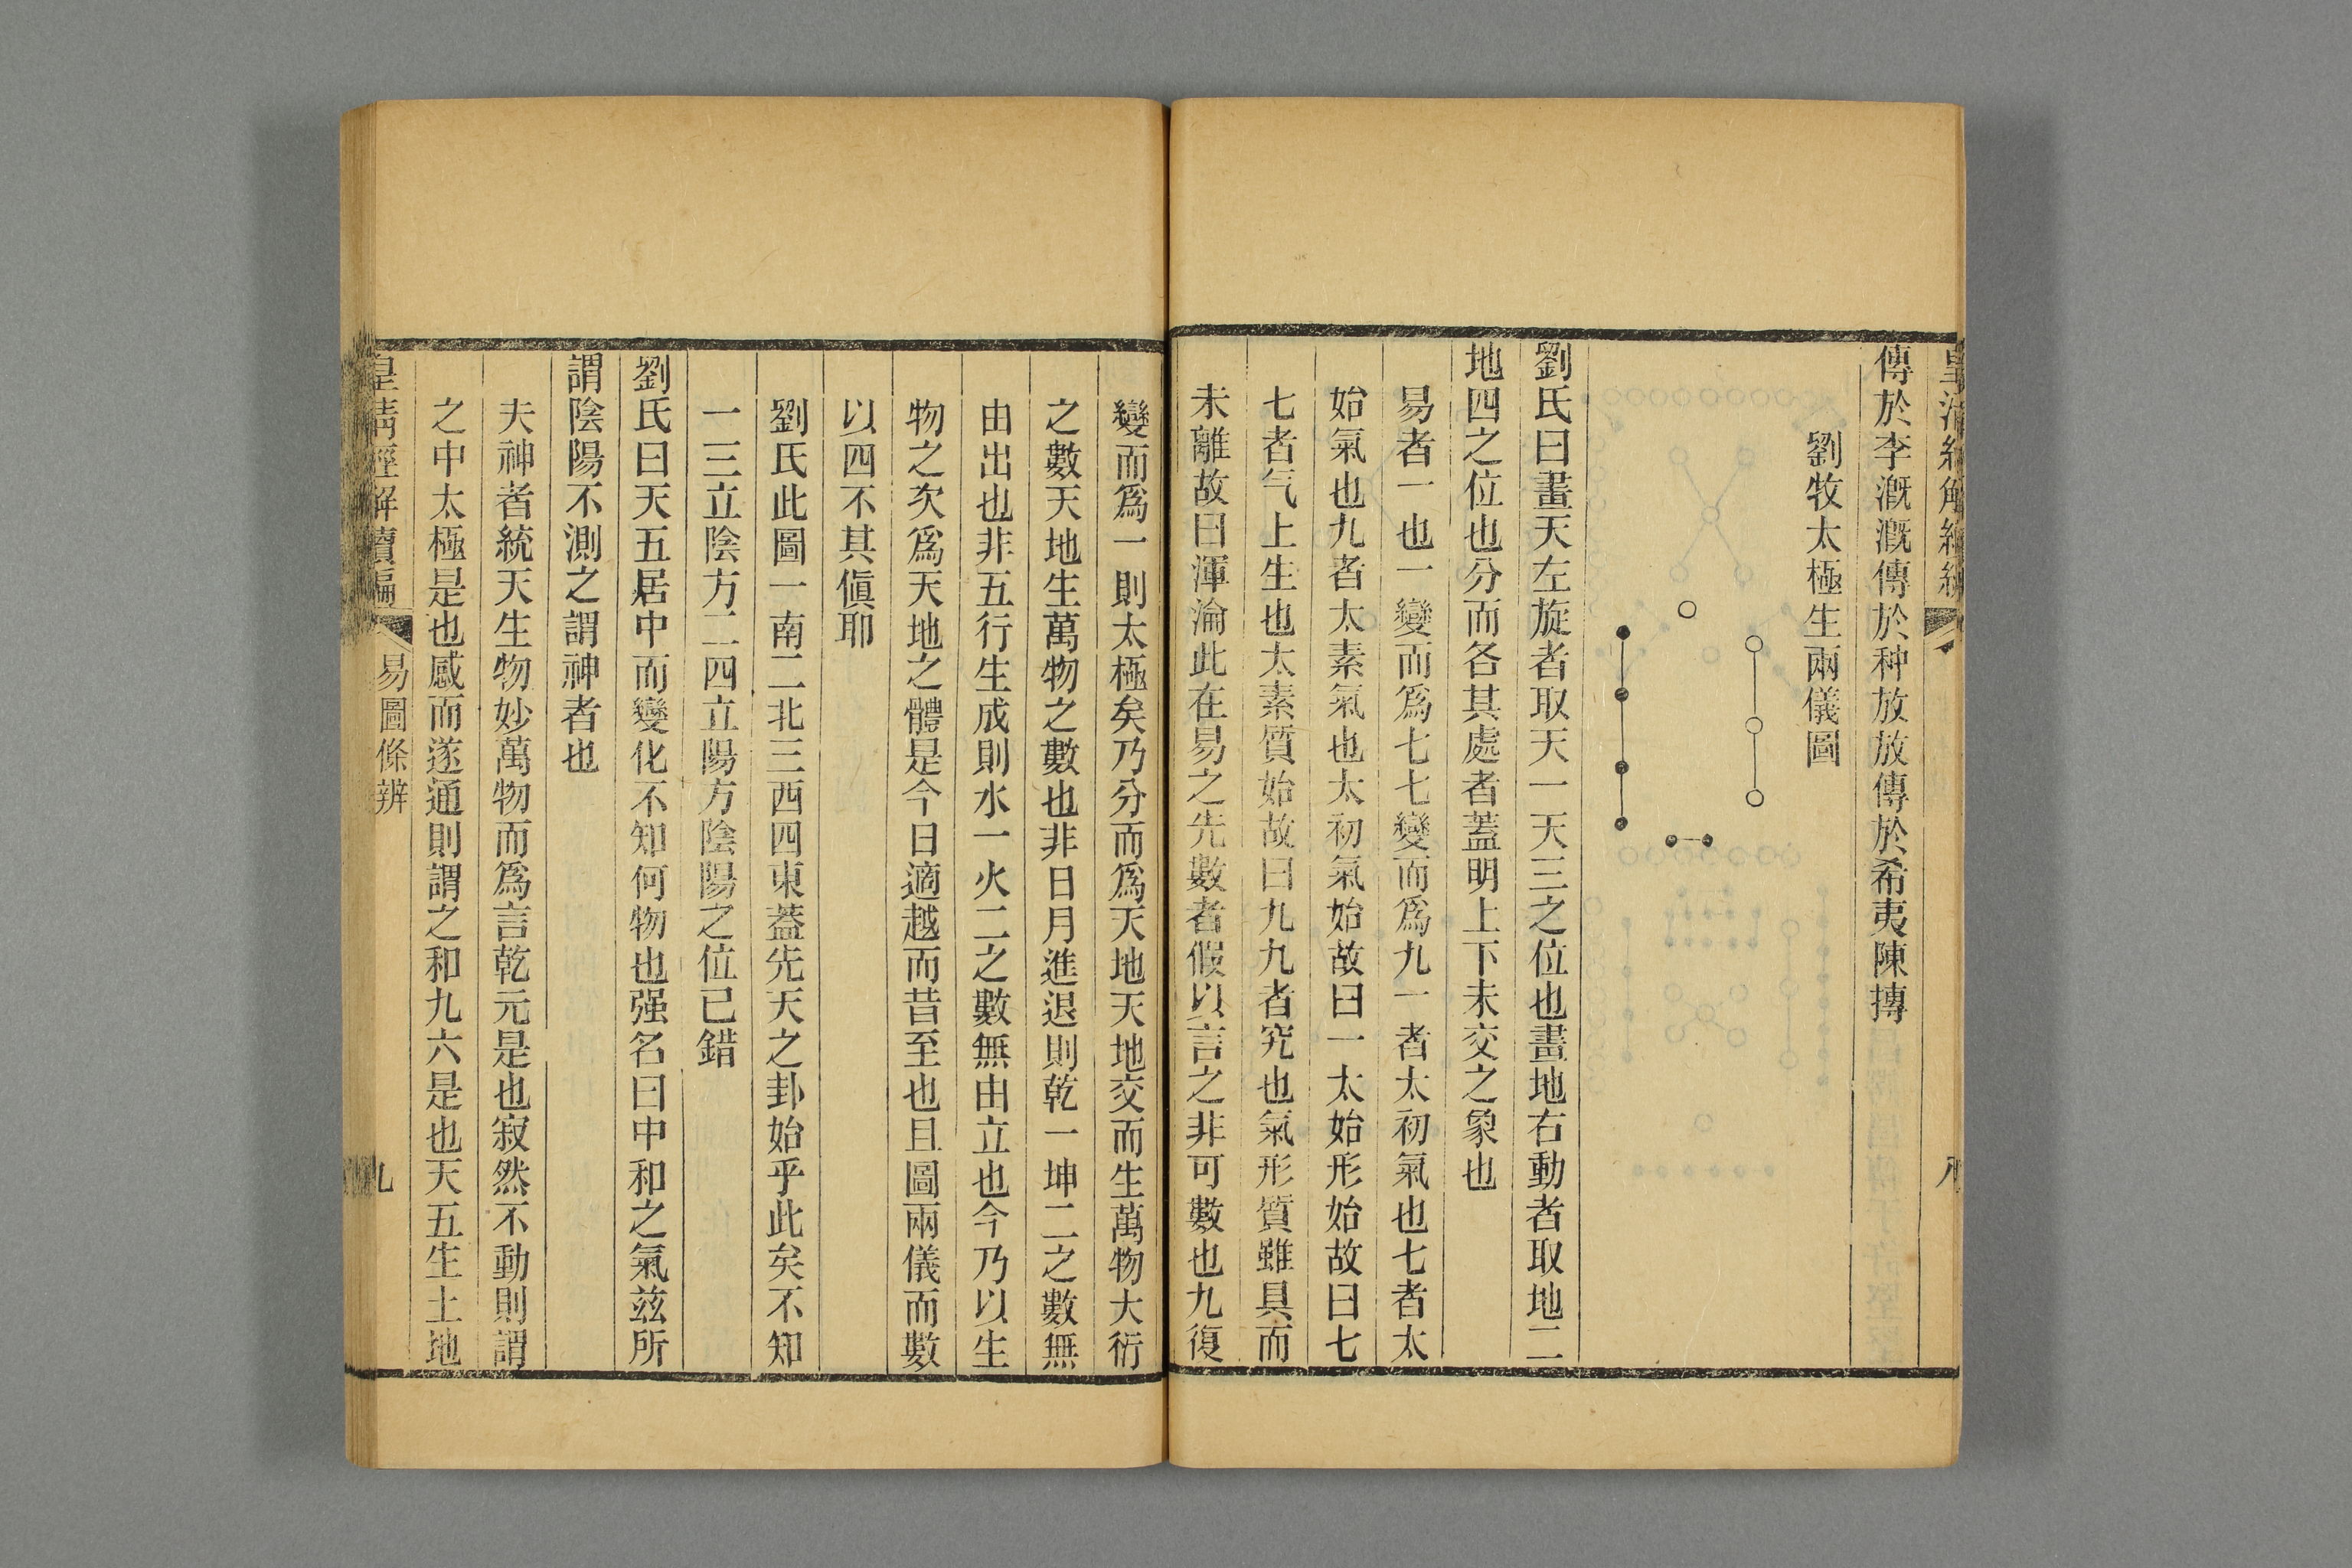 傳於李漑漑傳於种放放傳於希夷陳摶
劉牧太極生兩儀圖
劉氏曰畫天左旋者取天一天三之位也畫地右動者取地二
地四之位也分而各其處者蓋明上下未交之象也
易者一也一變而爲七七變而爲九一者太初氣也七者太
始氣也九者太素氣也太初氣始故曰一太始形始故曰七
七者气上生也太素質始故曰九九者究也氣形質雖具而
未離故曰渾淪此在易之先數者假以言之非可數也九復
變而爲一則太極矣乃分而爲天地天地交而生萬物大衍
之數天地生萬物之數也非日月進退則乾一坤二之數無
由出也非五行生成則水一火二之數無由立也今乃以生
物之次爲天地之體是今日適越而昔至也且圖兩儀而數
以四不其傎耶
劉氏此圖一南二北三西四東葢先天之卦始乎此矣不知
一三立陰方二四立陽方陰陽之位已錯
劉氏曰天五居中而變化不知何物也强名曰中和之氣玆所
謂陰陽不測之謂神者也
夫神者統天生物妙萬物而爲言乾元是也寂然不動則謂
之中太極是也感而遂通則謂之和九六是也天五生土地
皇淸經解續編
易圖條辨
九